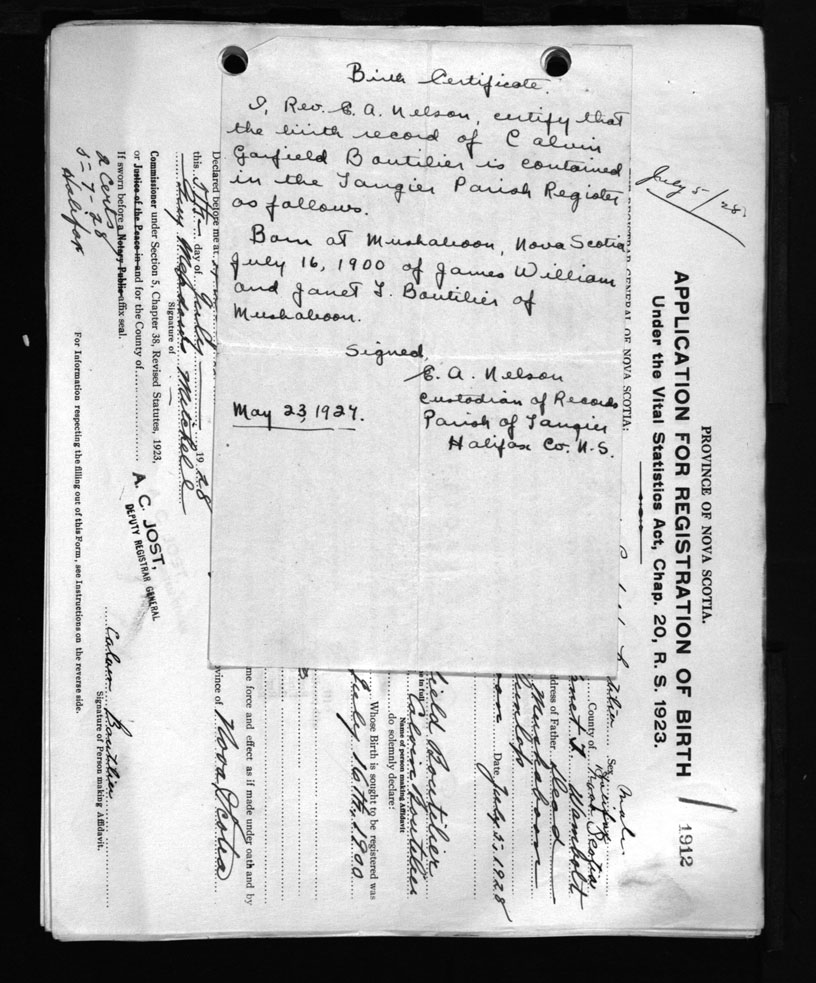 Birth Certificate.
I, Rev. E. A. Nelson, certify that
the birth record of Calvin
Garfield Boutilier is contained
in the Tangier Parish Register
as follows.
Born at Mushaboon, Nova Scotia
July 16, 1900 of James William
and Janet T. Boutilier of
Mushaboon.
Signed,
E. A. Nelson
Custodian of Records
Parish of Tangier
Halifax Co. N.S.
May 23, 1927.
July 5/28
PROVINCE OF NOVA SCOTIA.
APPLICATION FOR REGISTRATION OF BIRTH
Under the Vital Statistics Act, Chap. 20, R. S. 1923.
1912
REGISTRAR GENERAL OF NOVA SCOTIA:
Sex Male.
County of Halifax
Nova Scotia
Janet T
dress of Father dead
Mushaboon
Date July 5, 1928
Calvin Boutilier
Name of person making Affidavit
do solemnly declare:
field Boutilier
e in full
Whose Birth is sought to be registered was
July 16th, 1900
me force and effect as if made under oath and by
vince of Nova Scotia
Declared before me at
this 5th day of July 1928
Signature of
Commissioner under Section 5, Chapter 38, Revised Statutes, 1923,
or Justice of the Peace in and for the County of
If sworn before a Notary Public affix seal.
A. C. JOST,
DEPUTY REGISTRAR GENERAL
Calvin Boutilier
Signature of Person making Affidavit.
2 Certs
5-7-28
Halifax
For Information respecting the filling out of this Form, see Instructions on the reverse side.